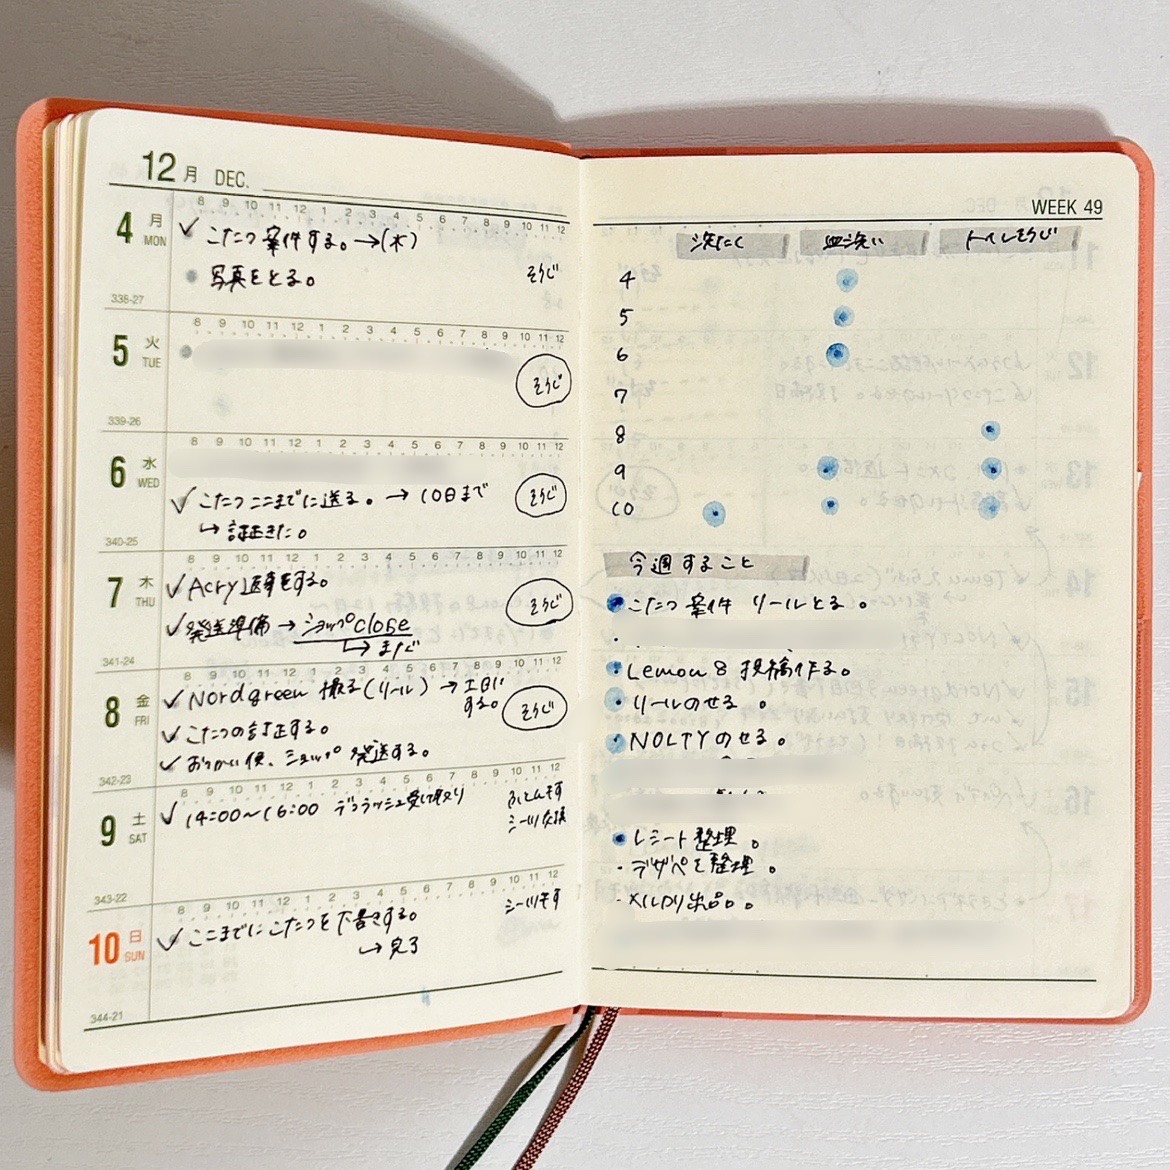 12月 DEC.
8 9 10 11 12 1 2 3 4 5 6 7 8 9 10 11 12
4 月 MON
✓ こたつ案件する。→(木)
● 写真をとる。 そうじ
338-27
8 9 10 11 12 1 2 3 4 5 6 7 8 9 10 11 12
5 火 TUE
そうじ
339-26
8 9 10 11 12 1 2 3 4 5 6 7 8 9 10 11 12
6 水 WED
✓ こたつここまでに送る。→ 10日まで そうじ
340-25
8 9 10 11 12 1 2 3 4 5 6 7 8 9 10 11 12
7 木 THU
✓ Acry返事をする。 そうじ
✓ 発送準備 → ショップclose
↳ まだ
341-24
8 9 10 11 12 1 2 3 4 5 6 7 8 9 10 11 12
8 金 FRI
✓ Nordgreen 撮る(リール) → 土日に
する。 そうじ
✓ こたつの訂正する。
✓ ショップ 発送する。
342-23
8 9 10 11 12 1 2 3 4 5 6 7 8 9 10 11 12
9 土 SAT
✓ 14:00〜16:00 受け取り
ふとん干す
シーツ交換
343-22
8 9 10 11 12 1 2 3 4 5 6 7 8 9 10 11 12
10 日 SUN
シーツ干す
✓ ここまでにこたつを下書きする。
↳ 完了
344-21
WEEK 49
洗たく 皿洗い トイレそうじ
4
5
6
7
8
9
10
今週すること
・こたつ案件 リールとる。
・Lemon8 投稿作る。
・リールのせる。
・NOLTYのせる。
・レシート整理。
・デザペ整理。
・メルカリ出品。